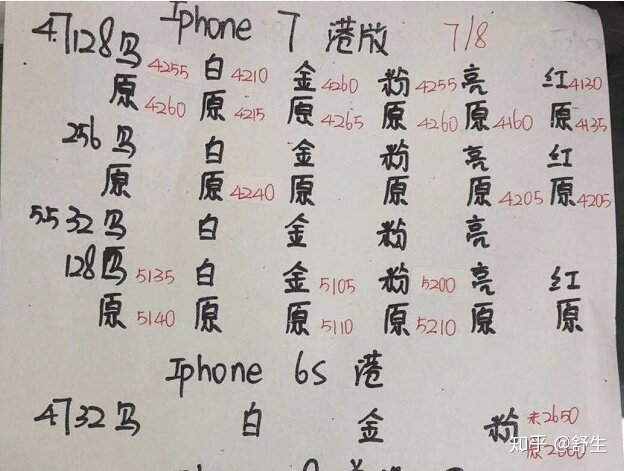 Iphone 7 港版 7/8
4.7 128 马 4255 白 4210 金 4260 粉 4255 亮 红 4130
原 4260 原 4215 原 4265 原 4260 原 4160 原 4135
256 马 白 金 粉 亮 红
原 原 4240 原 原 原 4205 原 4205
55 32 马 白 金 粉 亮
128 马 5135 白 金 5105 粉 5200 亮 红
原 5140 原 原 5110 原 5210 原 原
Iphone 6s 港
4.7 32 马 白 金 粉 未2650
原
知乎 @舒生